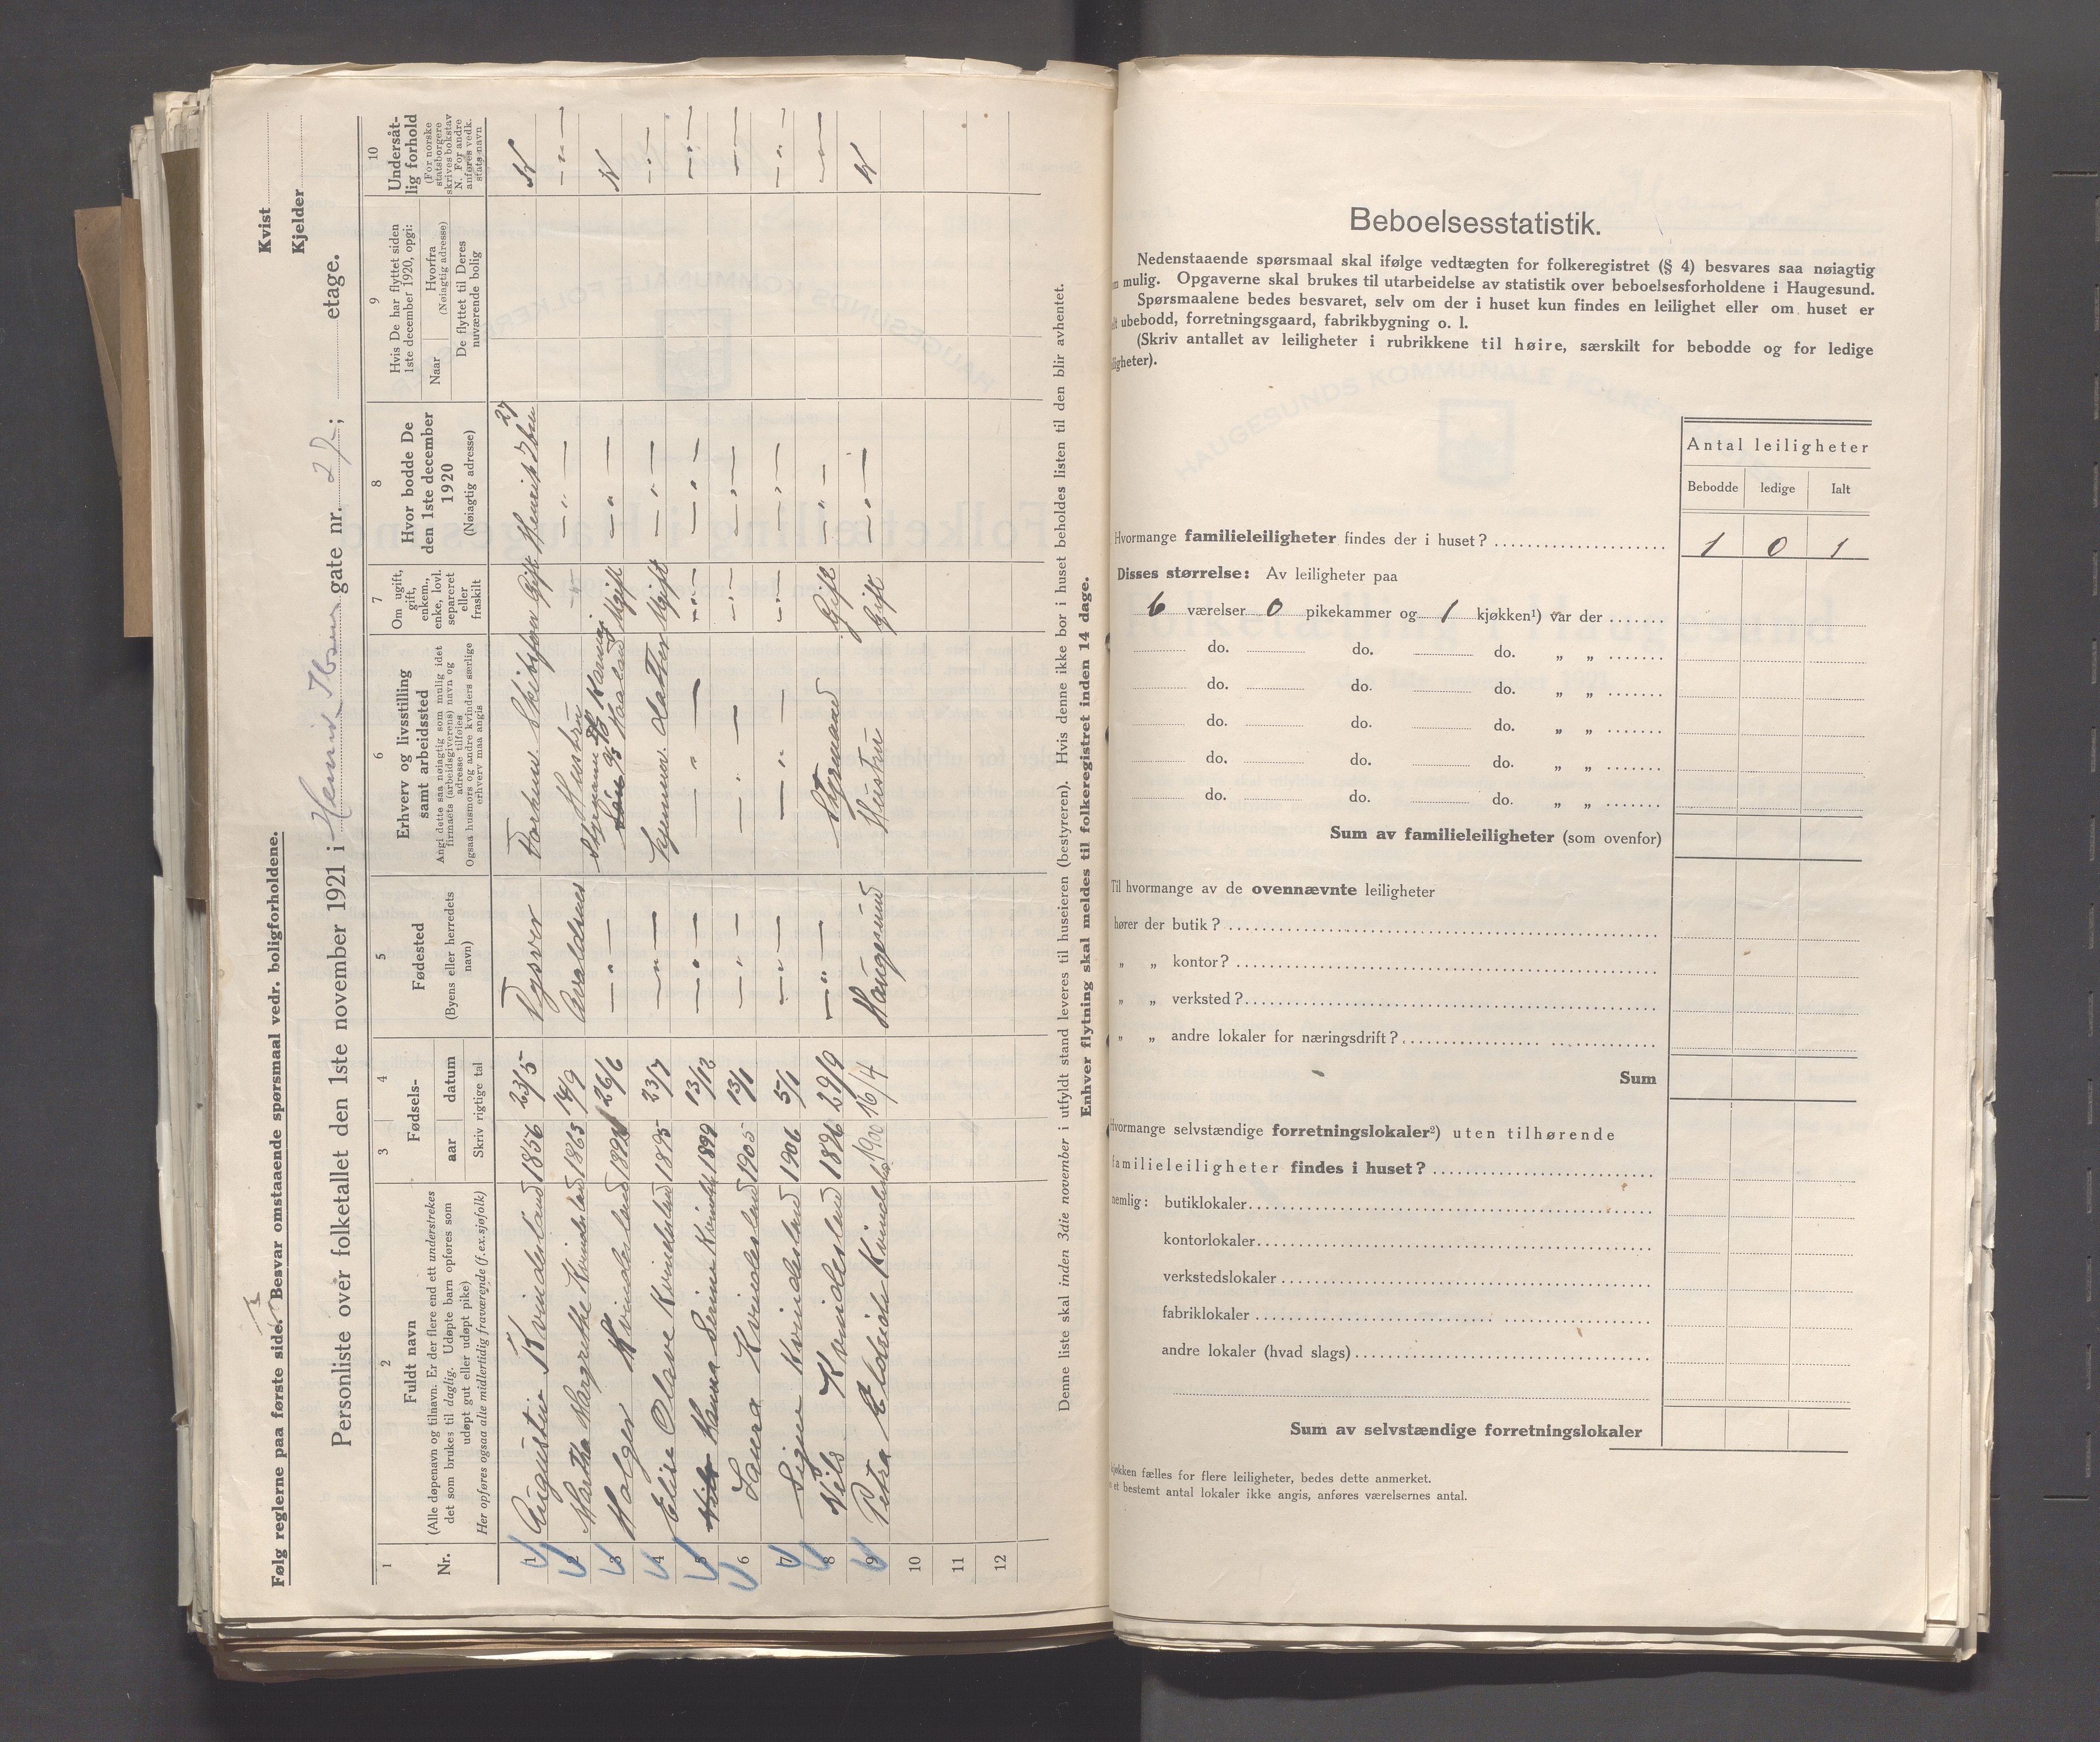 Følg reglerne paa første side. Besvar omstaaende spørsmaal vedr. boligforholdene.
Kvist
Kjelder
Personliste over folketallet den 1ste november 1921 i Henrik Ibsens gate nr. 27; etage.
1
Nr.
2
Fuldt navn
(Alle døpenavn og tilnavn. Er der flere end ett understrekes
det som brukes til daglig. Udøpte barn opføres som
udøpt gut eller udøpt pike)
Her opføres ogsaa alle midlertidig fraværende (f.ex.sjøfolk)
3 4
Fødsels-
aar datum
Skriv rigtige tal
5
Fødested
(Byens eller herredets
navn)
6
Erhverv og livsstilling
samt arbeidssted
Angi dette saa nøiagtig som mulig idet
firmaets (arbeidsgiverens) navn og
adresse tilføies
Ogsaa husmors og andre kvinders særlige
erhverv maa angis
7
Om ugift,
gift,
enkem.,
enke, lovl.
separeret
eller
fraskilt
8
Hvor bodde De
den 1ste december
1920
(Nøiagtig adresse)
9
Hvis De har flyttet siden
1ste december 1920, opgi:
Naar
Hvorfra
(Nøiagtig adresse)
De flyttet til Deres
nuværende bolig
10
Undersåt-
lig forhold
(For norske
statsborgere
skrives bokstav
N. For andre
anføres vedk.
stats navn
1 Augustin Kvindesland 1856 23/5 Tysvær Forhenv. Skibsfører Gift Henrik Ibsen 27 N
2 Martha Margrethe Kvindesland 1863 14/9 Avaldsnes Hustru — " — — " — — " —
3 Holger Kvindesland 26/6 — " — Ugift — " — N
4 Elise Olave Kvindesland 1895 23/7 — " — hjemmev. datter Ugift — " — — " —
5 Hanna Serine Kvindesl 1899 13/12 — " — — " — — " — — " — — " —
6 Laura Kvindesland 1905 13/1 — " — — " — — " — — " — — " —
7 Signe Kvindesland 1906 5/1 — " — — " — — " — — " — — " —
8 Nils Kvindesland 1896 29/9 — " — Styrmand Gift — " — — " —
9 Petra Kvindesland 1900 16/4 Haugesund Hustru Gift — " — N
10
11
12
Denne liste skal inden 3die november i utfyldt stand leveres til huseieren (bestyreren). Hvis denne ikke bor i huset beholdes listen til den blir avhentet.
Enhver flytning skal meldes til folkeregistret inden 14 dage.
Beboelsesstatistik.
Nedenstaaende spørsmaal skal ifølge vedtægten for folkeregistret (§ 4) besvares saa nøiagtig
mulig. Opgaverne skal brukes til utarbeidelse av statistik over beboelsesforholdene i Haugesund.
Spørsmaalene bedes besvaret, selv om der i huset kun findes en leilighet eller om huset er
ubebodd, forretningsgaard, fabrikbygning o. l.
(Skriv antallet av leiligheter i rubrikkene til høire, særskilt for bebodde og for ledige
ligheter).
Antal leiligheter
Bebodde ledige Ialt
Hvormange familieleiligheter findes der i huset? 1 0 1
Disses størrelse: Av leiligheter paa
6 værelser 0 pikekammer og 1 kjøkken¹) var der
do. do. do. „ „
do. do. do. „ „
do. do. do. „ „
do. do. do. „ „
do. do. do. „ „
Sum av familieleiligheter (som ovenfor)
Til hvormange av de ovennævnte leiligheter
hører der butik?
„ „ kontor?
„ „ verksted?
„ „ andre lokaler for næringsdrift?
Sum
Hvormange selvstændige forretningslokaler²) uten tilhørende
familieleiligheter findes i huset?
nemlig: butiklokaler
kontorlokaler
verkstedslokaler
fabriklokaler
andre lokaler (hvad slags)
Sum av selvstændige forretningslokaler
kjøkken fælles for flere leiligheter, bedes dette anmerket.
et bestemt antal lokaler ikke angis, anføres værelsernes antal.